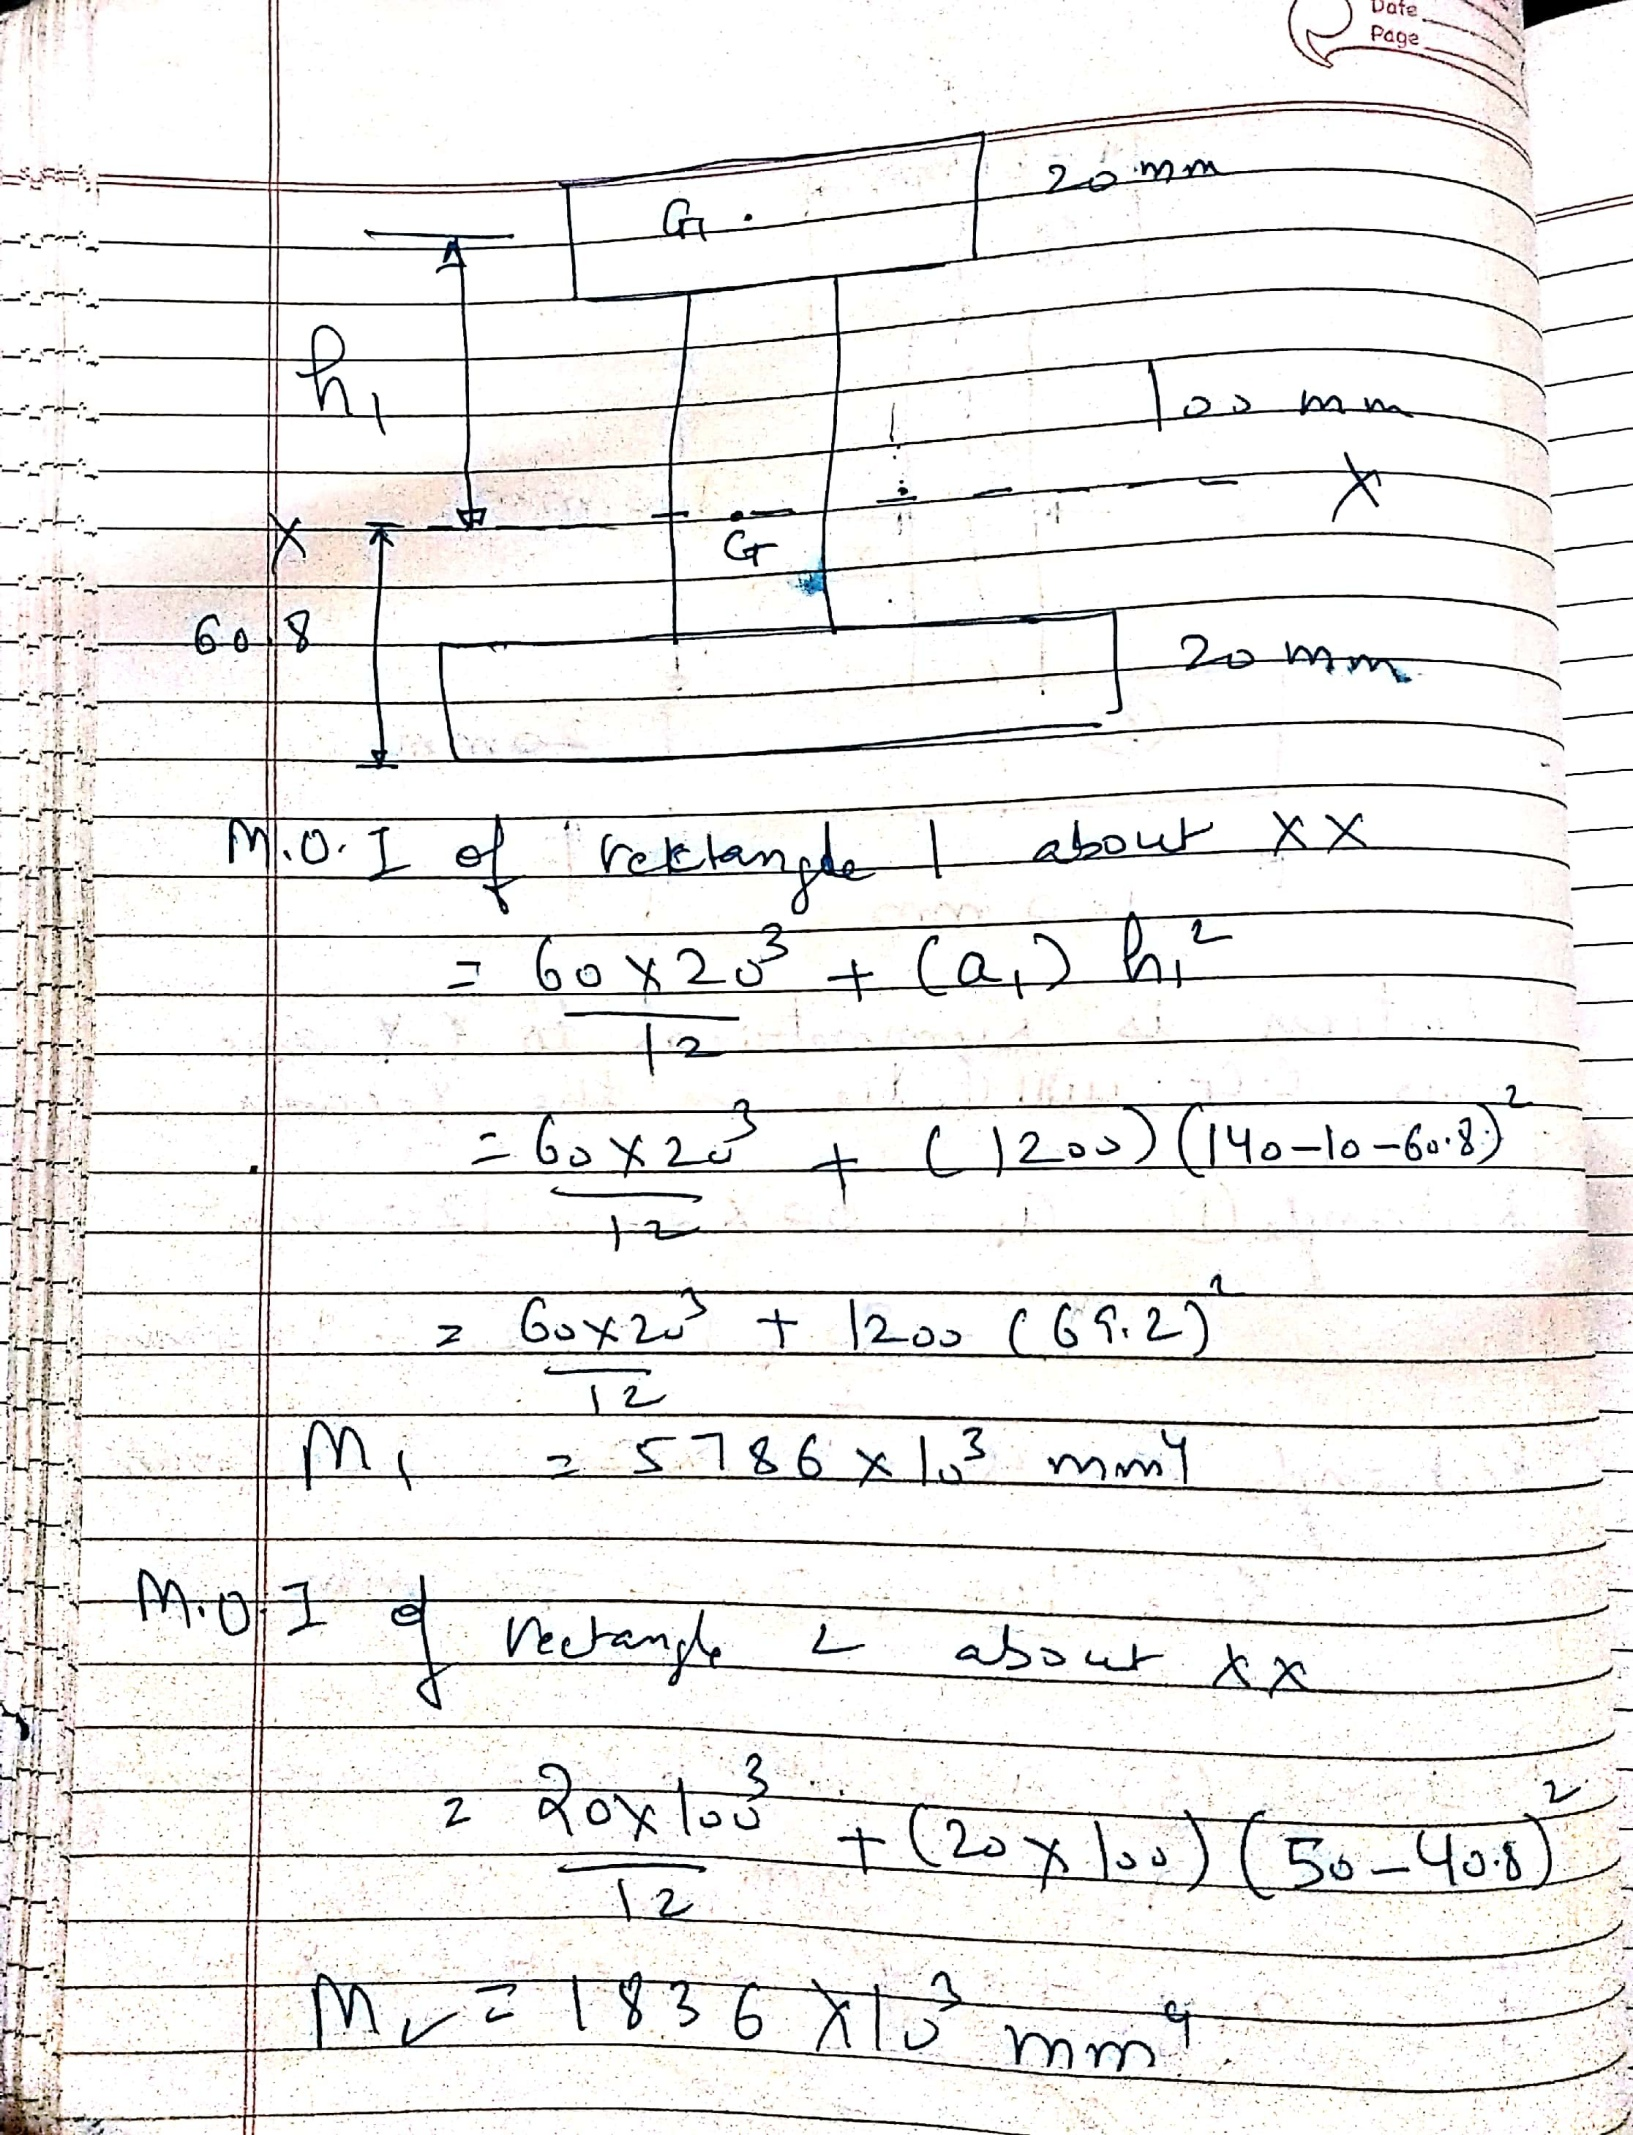 Date
Page
20 mm
G1 .
h1
100 mm
X
X
G
60.8
20 mm
M.O.I of rektangle 1 about XX
= 60 x 20³ / 12 + (a1) h1²
= 60 x 20³ / 12 + (1200) (140-10-60.8)²
= 60x20³ / 12 + 1200 (69.2)²
M1 = 5786 x 10³ mm⁴
M.O.I of rectangle 2 about XX
= 20x100³ / 12 + (20 x 100) (50-40.8)²
M2 = 1836 x 10³ mm⁴